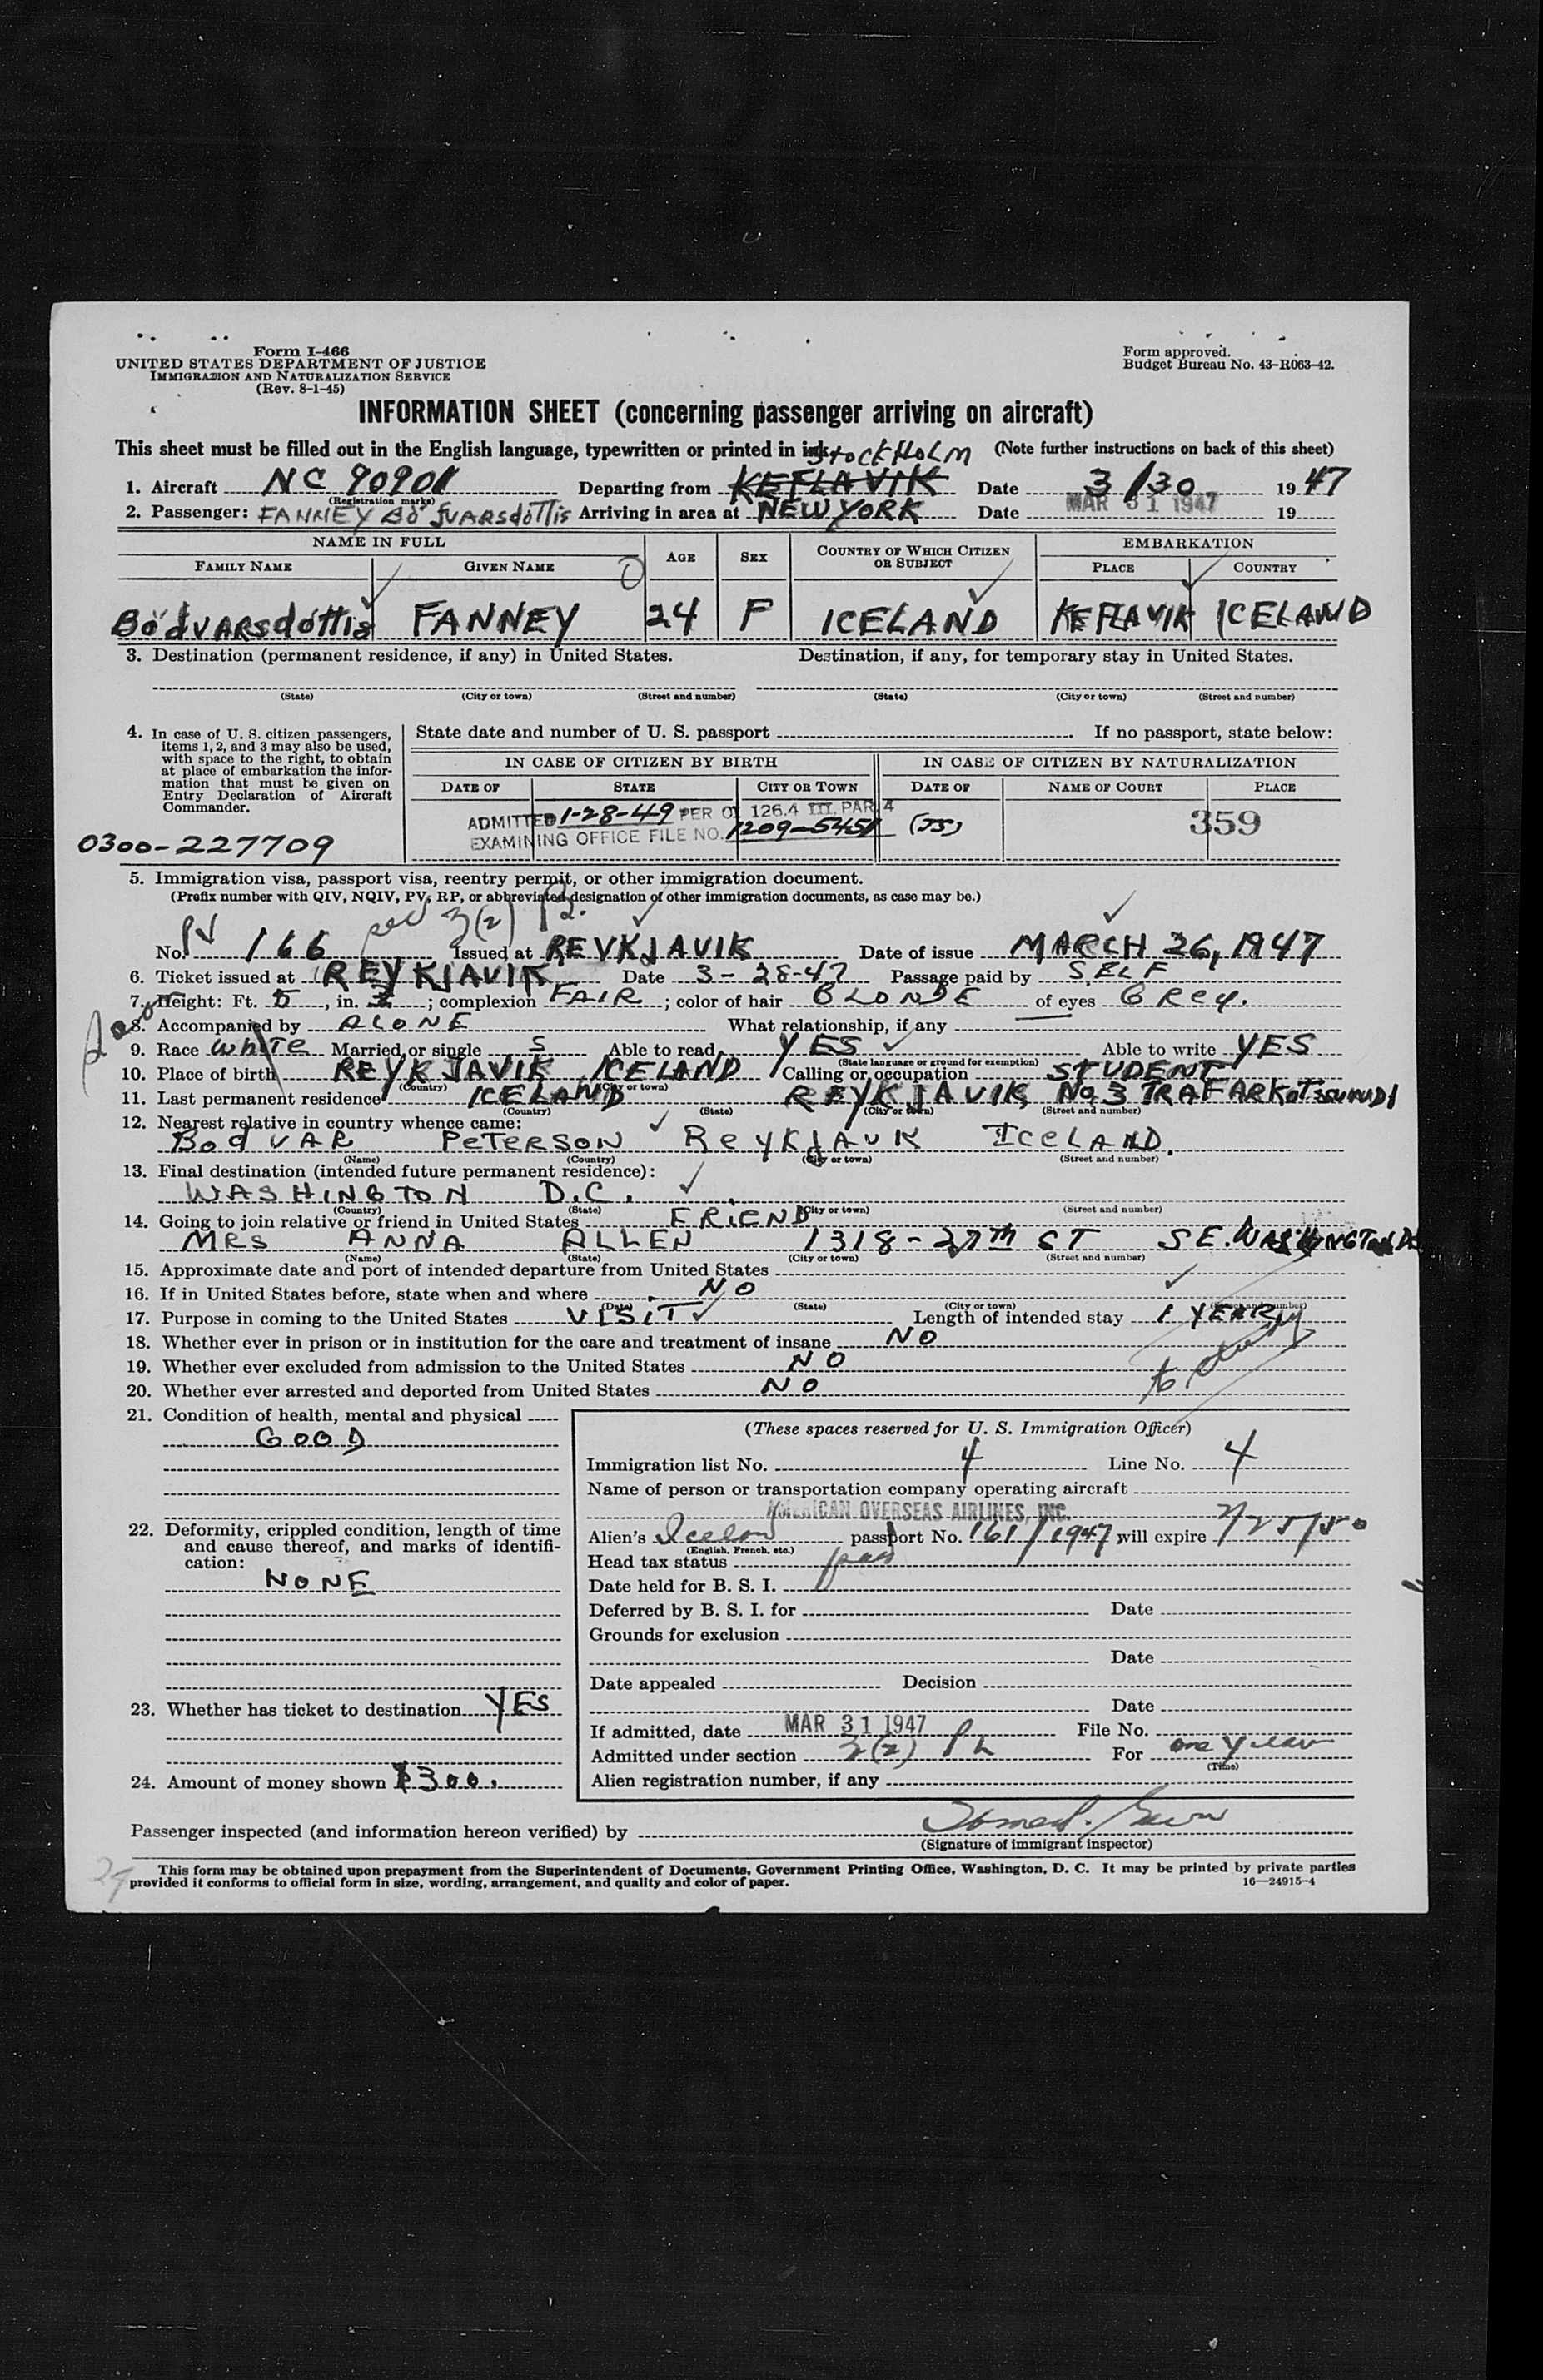 Form I-466
UNITED STATES DEPARTMENT OF JUSTICE
IMMIGRATION AND NATURALIZATION SERVICE
(Rev. 8-1-45)
Form approved.
Budget Bureau No. 43-R063-42.
INFORMATION SHEET (concerning passenger arriving on aircraft)
This sheet must be filled out in the English language, typewritten or printed in ink. (Note further instructions on back of this sheet)
STOCKHOLM
1. Aircraft NC 90901 Departing from KEFLAVIK Date 3/30 1947
(Registration marks)
2. Passenger: FANNEY Arriving in area at NEW YORK Date MAR 31 1947 19
NAME IN FULL AGE SEX COUNTRY OF WHICH CITIZEN OR SUBJECT EMBARKATION
FAMILY NAME GIVEN NAME PLACE COUNTRY
BödVARSdóttis FANNEY 24 F ICELAND KEFLAVIK ICELAND
3. Destination (permanent residence, if any) in United States. Destination, if any, for temporary stay in United States.
(State) (City or town) (Street and number) (State) (City or town) (Street and number)
4. In case of U. S. citizen passengers, items 1, 2, and 3 may also be used, with space to the right, to obtain at place of embarkation the information that must be given on Entry Declaration of Aircraft Commander.
State date and number of U. S. passport If no passport, state below:
IN CASE OF CITIZEN BY BIRTH IN CASE OF CITIZEN BY NATURALIZATION
DATE OF STATE CITY OR TOWN DATE OF NAME OF COURT PLACE
ADMITTED 1-28-49 PER OI 126.4 III. PAR 4
EXAMINING OFFICE FILE NO. 1209-5451 (JS) 359
0300-227709
5. Immigration visa, passport visa, reentry permit, or other immigration document.
(Prefix number with QIV, NQIV, PV, RP, or abbreviated designation of other immigration documents, as case may be.)
3(2)
No. PV 166 Issued at REYKJAVIK Date of issue MARCH 26, 1947
6. Ticket issued at REYKJAVIK Date 3-28-47 Passage paid by SELF
7. Height: Ft. 5, in. ; complexion FAIR; color of hair BLONDE of eyes GRey.
8. Accompanied by ALONE What relationship, if any
9. Race White Married or single S Able to read YES Able to write YES
(State language or ground for exemption)
10. Place of birth REYKJAVIK ICELAND Calling or occupation STUDENT
(Country) (City or town)
11. Last permanent residence ICELAND REYKJAVIK No. 3
(Country) (State) (City or town) (Street and number)
12. Nearest relative in country whence came:
BodVAR PETERSON REYKJAVIK ICELAND.
(Name) (Country) (City or town) (Street and number)
13. Final destination (intended future permanent residence):
WASHINGTON D.C.
(Country) (State) (City or town) (Street and number)
14. Going to join relative or friend in United States FRIEND
MRS ANNA ALLEN 1318-27th ST SE. WASHINGTON DC
(Name) (State) (City or town) (Street and number)
15. Approximate date and port of intended departure from United States
16. If in United States before, state when and where NO
(Date) (State) (City or town) (Street and number)
17. Purpose in coming to the United States VISIT Length of intended stay 1 YEAR
to study
18. Whether ever in prison or in institution for the care and treatment of insane NO
19. Whether ever excluded from admission to the United States NO
20. Whether ever arrested and deported from United States NO
21. Condition of health, mental and physical
GOOD
22. Deformity, crippled condition, length of time and cause thereof, and marks of identification:
NONE
23. Whether has ticket to destination YES
24. Amount of money shown $300.
(These spaces reserved for U. S. Immigration Officer)
Immigration list No. 4 Line No. 4
Name of person or transportation company operating aircraft
AMERICAN OVERSEAS AIRLINES, INC.
Alien's Iceland passport No. 161/1947 will expire
(English, French, etc.)
Head tax status paid
Date held for B. S. I.
Deferred by B. S. I. for Date
Grounds for exclusion
Date
Date appealed Decision
Date
If admitted, date MAR 31 1947 File No.
Admitted under section 3(2) For one year
(Time)
Alien registration number, if any
Passenger inspected (and information hereon verified) by
(Signature of immigrant inspector)
This form may be obtained upon prepayment from the Superintendent of Documents, Government Printing Office, Washington, D. C. It may be printed by private parties
provided it conforms to official form in size, wording, arrangement, and quality and color of paper.
16—24915-4